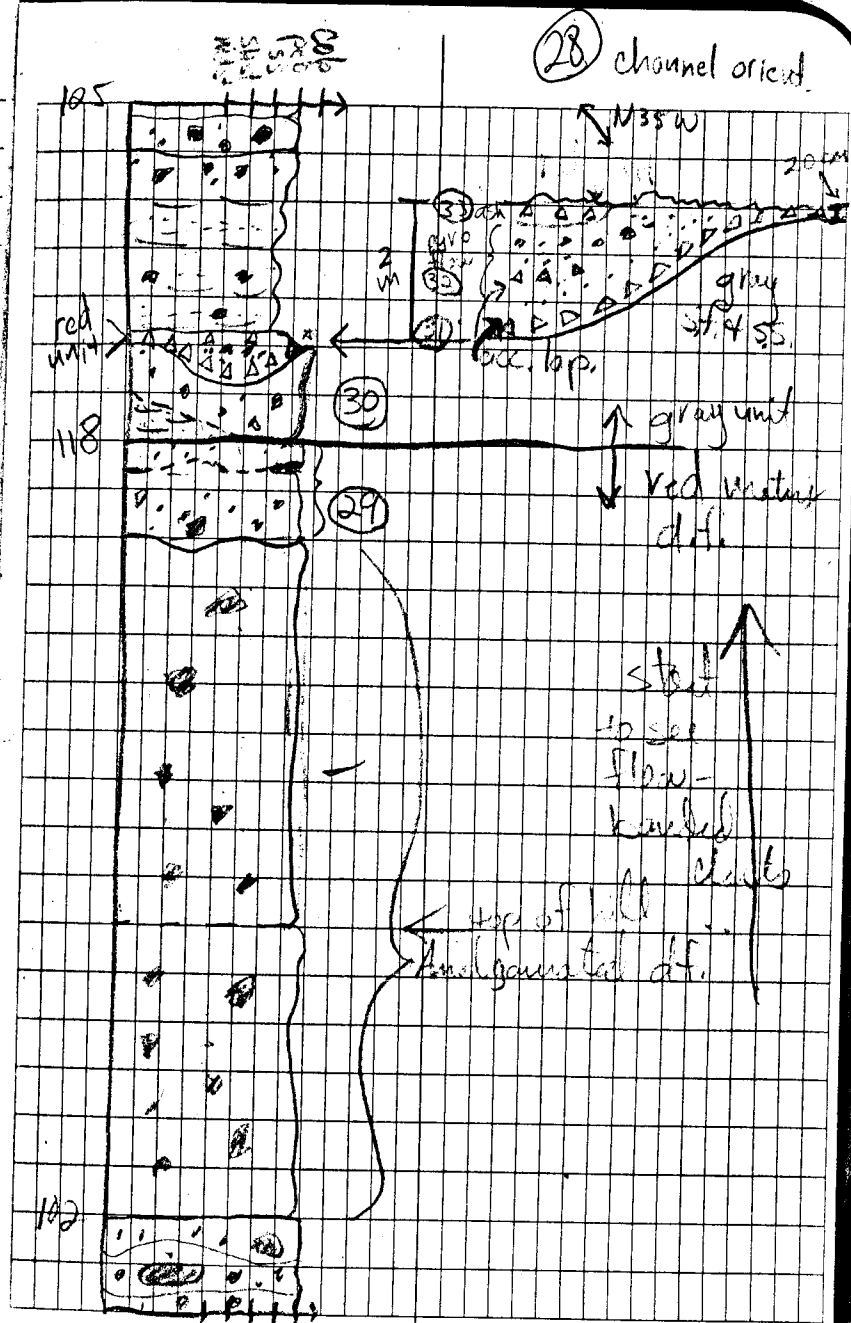 28 channel orient.
N35W
125
20 cm
33 ash
2 m
pyro
32
gray
sf. & ss.
31
acc. lap.
red
unit
30
gray unit
118
red matrix
d.f.
29
start
to see
flow-
banded
clasts
top of hill
Amalgamated d.f.
102